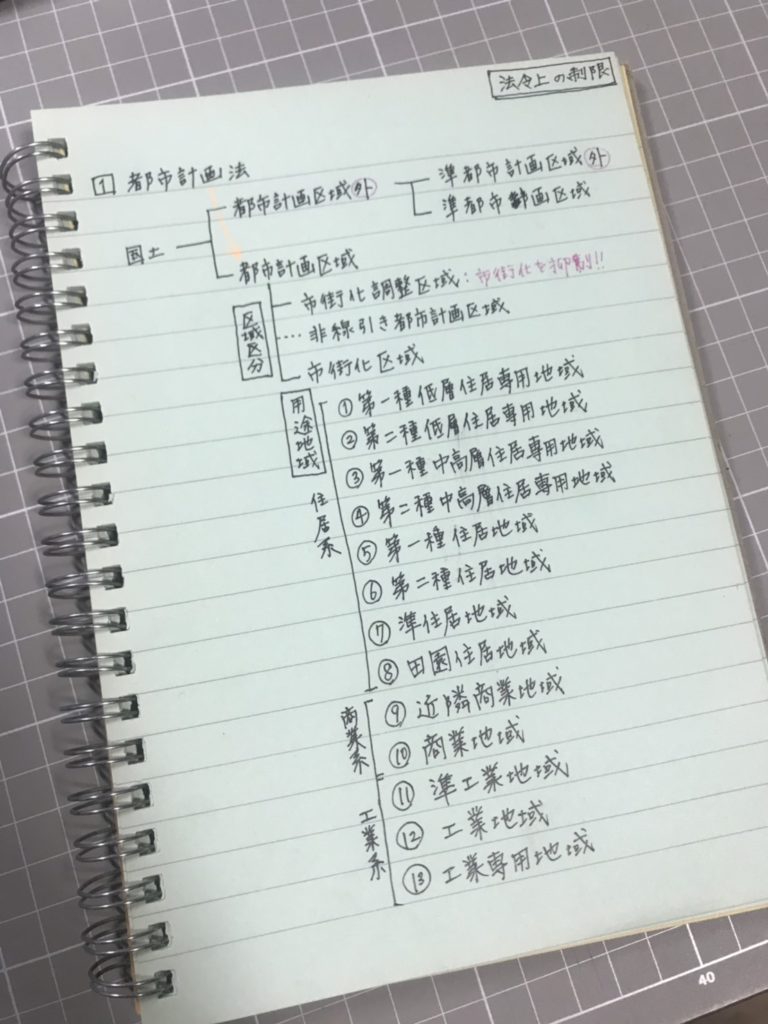 法令上の制限
1 都市計画法
国土
都市計画区域外
準都市計画区域外
準都市計画区域
都市計画区域
区域区分
市街化調整区域：市街化を抑制!!
非線引き都市計画区域
市街化区域
用途地域
住居系
① 第一種低層住居専用地域
② 第二種低層住居専用地域
③ 第一種中高層住居専用地域
④ 第二種中高層住居専用地域
⑤ 第一種住居地域
⑥ 第二種住居地域
⑦ 準住居地域
⑧ 田園住居地域
商業系
⑨ 近隣商業地域
⑩ 商業地域
工業系
⑪ 準工業地域
⑫ 工業地域
⑬ 工業専用地域
40